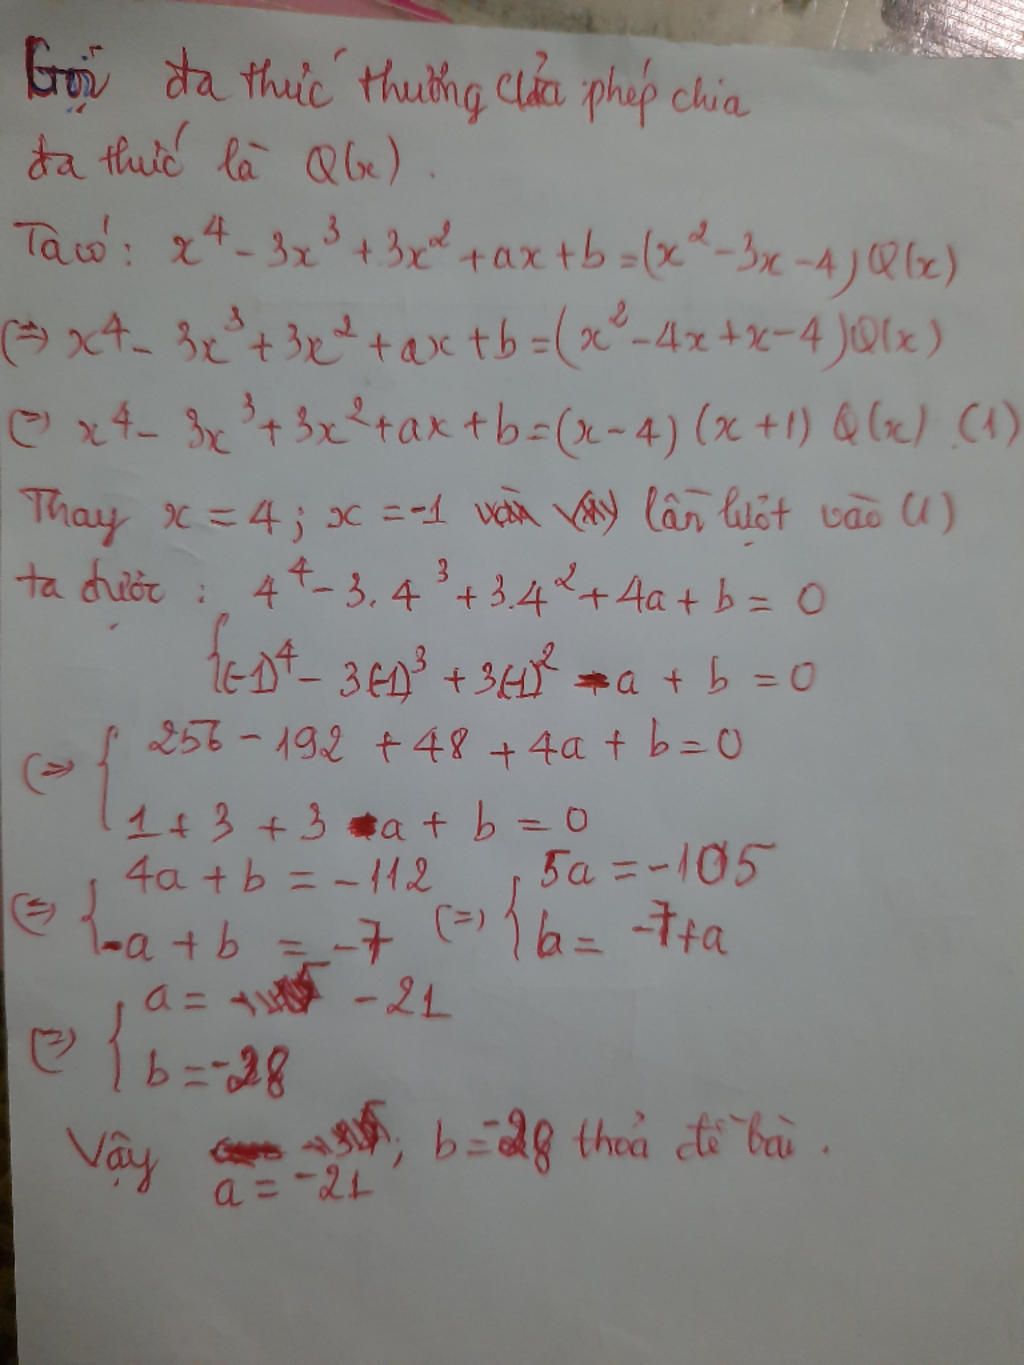 Gọi đa thức thương của phép chia
đa thức là Q(x).
Ta có: x⁴ - 3x³ + 3x² + ax + b = (x² - 3x - 4) Q(x)
(=) x⁴ - 3x³ + 3x² + ax + b = (x² - 4x + x - 4) Q(x)
(=) x⁴ - 3x³ + 3x² + ax + b = (x - 4) (x + 1) Q(x) (1)
Thay x = 4; x = -1 lần lượt vào (1)
ta được: 4⁴ - 3.4³ + 3.4² + 4a + b = 0
{ (-1)⁴ - 3(-1)³ + 3(-1)² - a + b = 0
(=) { 256 - 192 + 48 + 4a + b = 0
1 + 3 + 3 - a + b = 0
(=) { 4a + b = -112
-a + b = -7
(=) { 5a = -105
b = -7 + a
(=) { a = -21
b = -28
Vậy ; b = -28 thoả đề bài.
a = -21